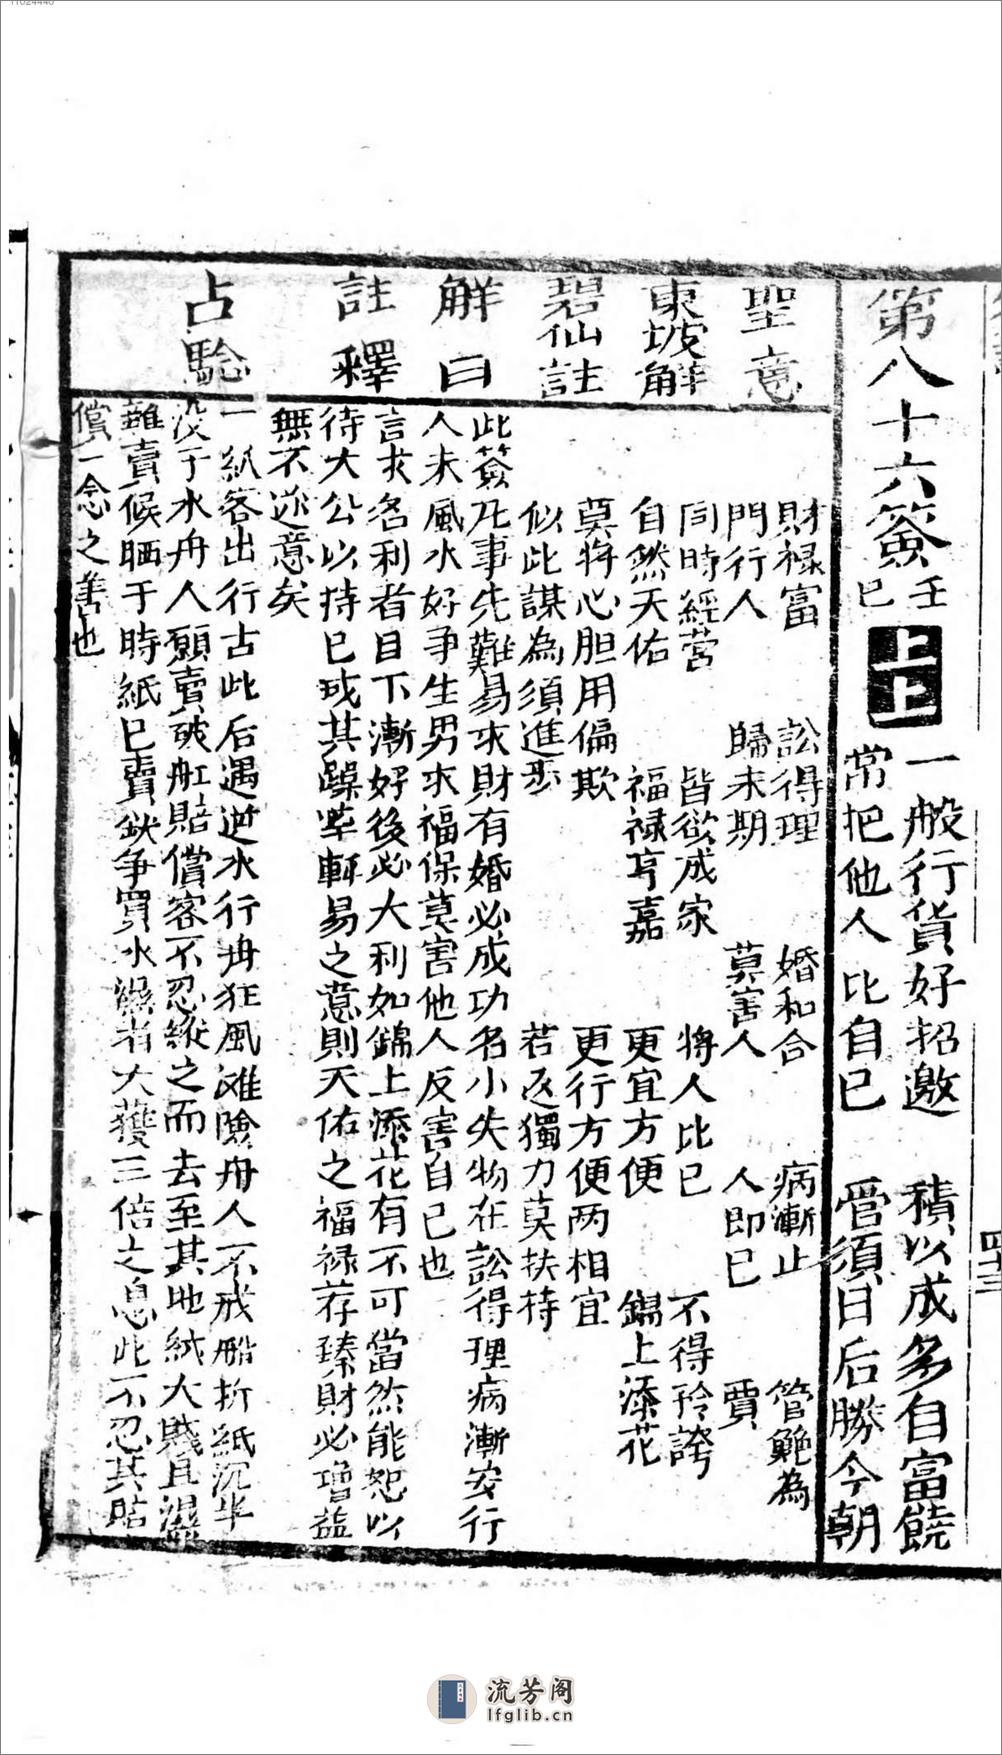 第八十六簽 壬巳 上上
一般行貨好招邀 積以成多自富饒
常把他人比自巳 管須日后勝今朝
四十三
聖意
財禄富 訟得理 婚和合 病漸止 管鮑為
門行人 歸未期 莫害人 人即巳 賈
東坡解
同時經营 皆欲成家 將人比巳 不得矜誇
自然天佑 福禄亨嘉 更宜方便 錦上添花
碧仙註
莫將心胆用偏欺 更行方便两相宜
似此謀為須進步 若逞獨力莫扶持
解曰
此簽凡事先難易求財有婚必成功名小失物在訟得理病漸安行
人未風水好爭生男求福保莫害他人反害自已也
註釋
言求名利者目下漸好後必大利如錦上添花有不可當然能恕以
待大公以持巳或其躁 軒易之意則天佑之福禄荐臻財必增益
無不遂意矣
占驗
一紙客出行古此后遇逆水行舟狂風滩險舟人不戒船折紙沉半
没于水舟人願賣破舡賠償客不忍縱之而去至其地紙大賤且濕
難賣候晒于時紙已賣缺争買水濕者大獲三倍之息此不忍其賠
償一念之善也
流芳阁
lfglib.cn